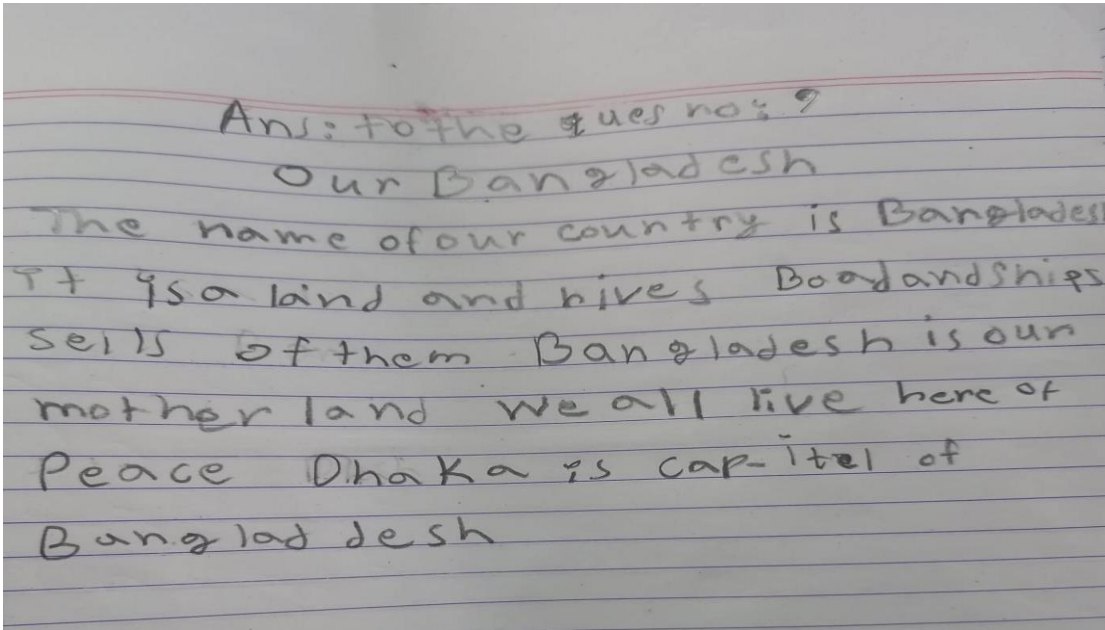 Ans: to the ques no: 9
Our Bangladesh
The name of our country is Banglades
It is a laind and rives Boad and Ships
sells of them Bangladesh is our
mother land we all live here of
Peace Dhaka is cap-itel of
Banglad desh